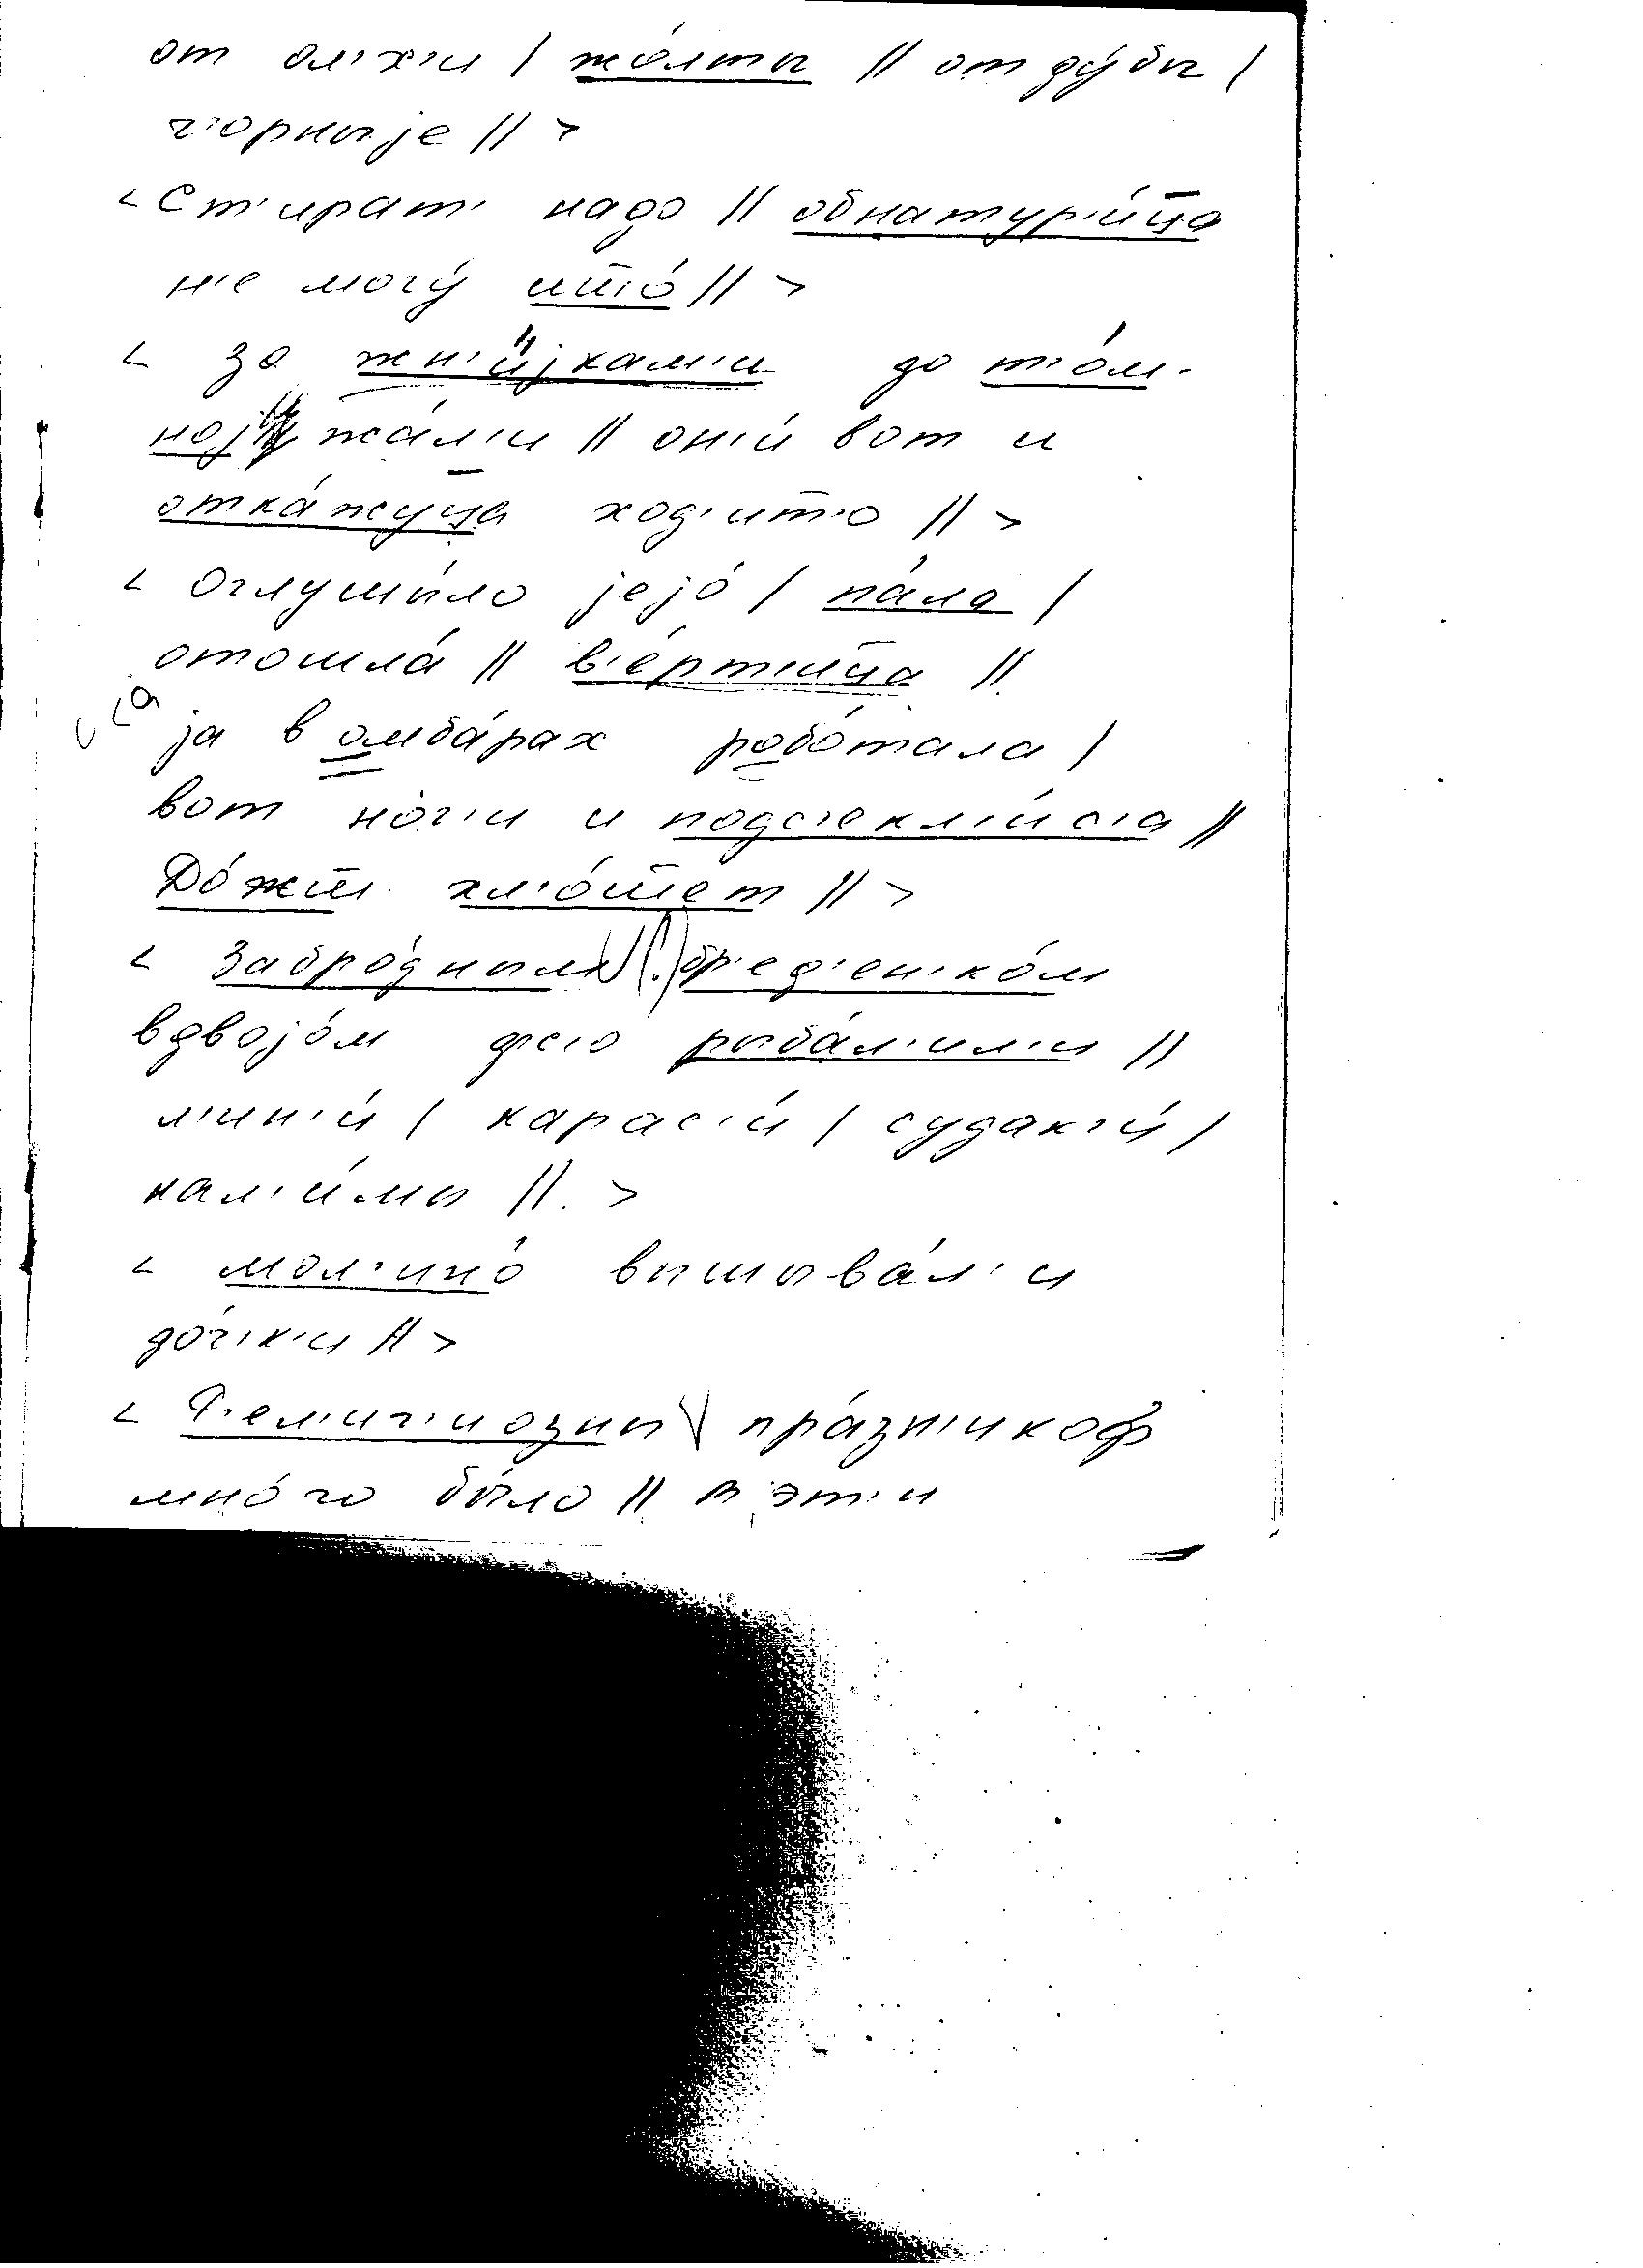 от ол'х'и / жо́лты // от ду́бы /
ч'о́рныје // >
< Ст'ират' надо // обнатур'и́ц̄а
н'е могу́ ит̄'о́ // >
< за жн'и́јкам'и до т'о́м-
ној жа́л'и // он'и́ вот и
отка́жуц̄а ход'ит'о // >
< Оглуши́ло јејо́ / па́ла /
отошла́ // в'е́рт'иц̄а //
ја в омба́рах робо́тала /
вот но́г'и и подс'екл'и́с'а //
До́жт̄' хл'о́щет // >
< Забро́дным (.) бр'ед'ен'ко́м
вдвојо́м фс'о рыба́л'ил'и //
л'ин'и́ / карас'и́ / судак'и́ /
нал'и́мы // . >
< мол'ино́ вышыва́л'и
до́ч'к'и // >
< Ф'ел'иг'иозны пра́зн'икоф
мно́го бы́ло // в эт'и